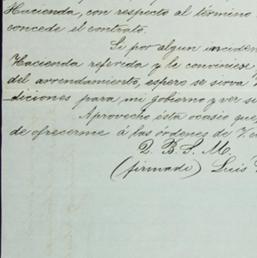 Hacienda, con respecto al término
concede el contrato.
Si por algun inciden
Hacienda referida y le conviniese
del arrendamiento, espero se sirva
diciones para mi gobierno y ver si
Aprovecho ésta ocasio que
de ofrecerme á las órdenes de V. 
Q. B. S. M.
(firmado) Luis